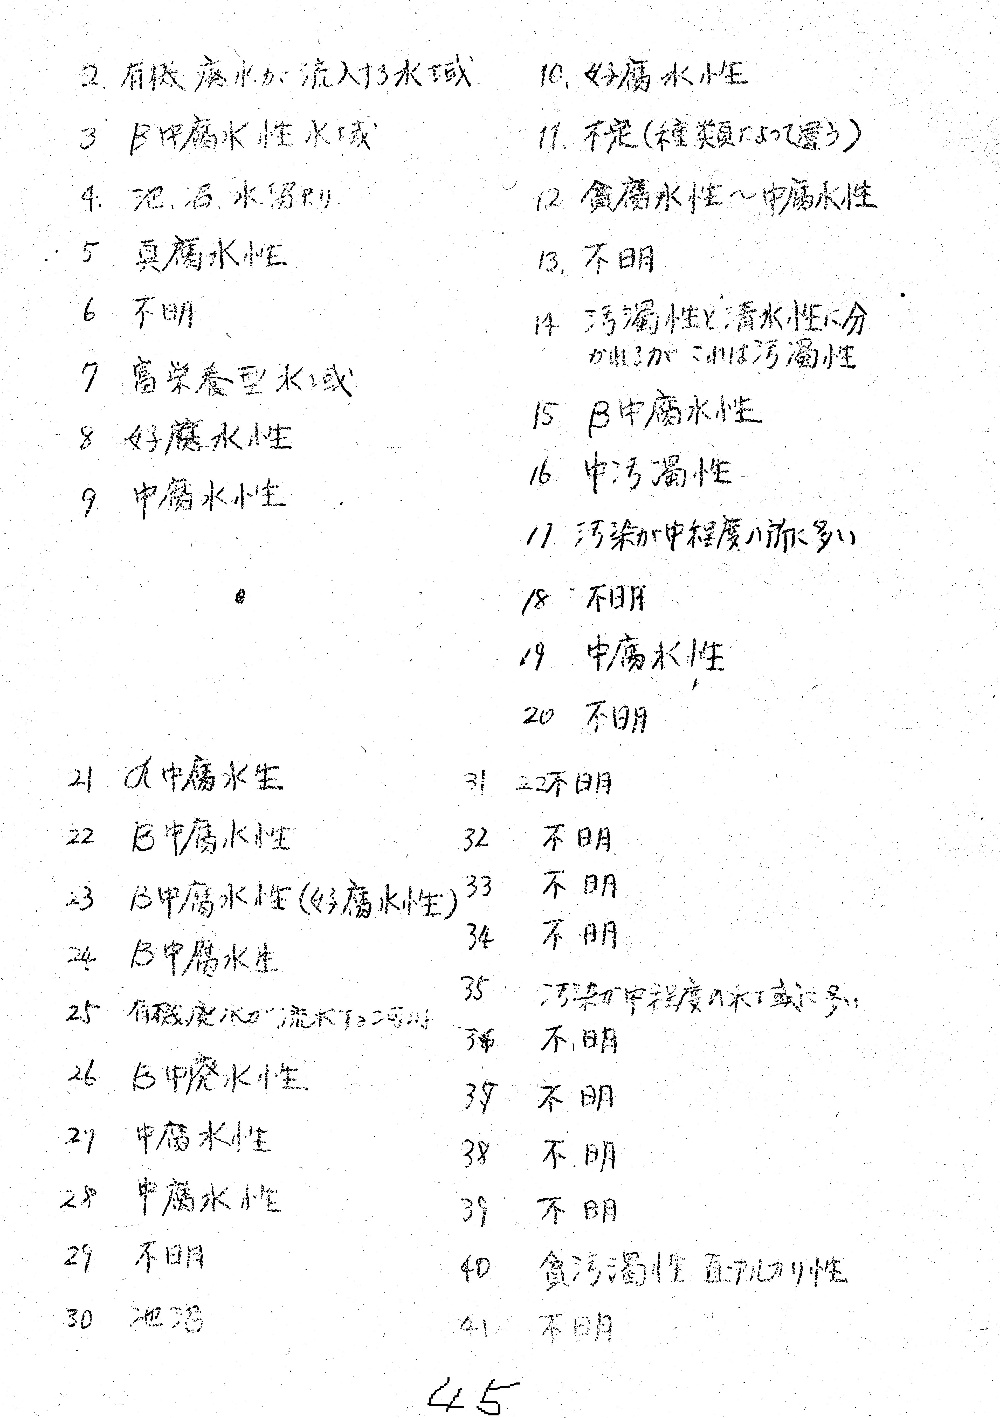 2. 有機廃水が流入する水域
3 β中腐水性水域
4. 池、沼、水溜り
5 真腐水性
6 不明
7 富栄養型水域
8 好腐水性
9 中腐水性
10. 好腐水性
11. 不定(種類によって異う)
12 貧腐水性～中腐水性
13. 不明
14 汚濁性と清水性に分
かれるが これは汚濁性
15 β中腐水性
16 中汚濁性
17 汚染が中程度の所に多い
18 不明
19 中腐水性
20 不明
21 α中腐水生
22 β中腐水性
23 β中腐水性(好腐水性)
24 β中腐水生
25 有機廃水が流水する
26 β中廃水性
27 中腐水性
28 中腐水性
29 不明
30 池沼
31 22不明
32 不明
33 不明
34 不明
35 汚染が中程度の水域に多い
36 不明
37 不明
38 不明
39 不明
40 貧汚濁性 アルカリ性
41 不明
45